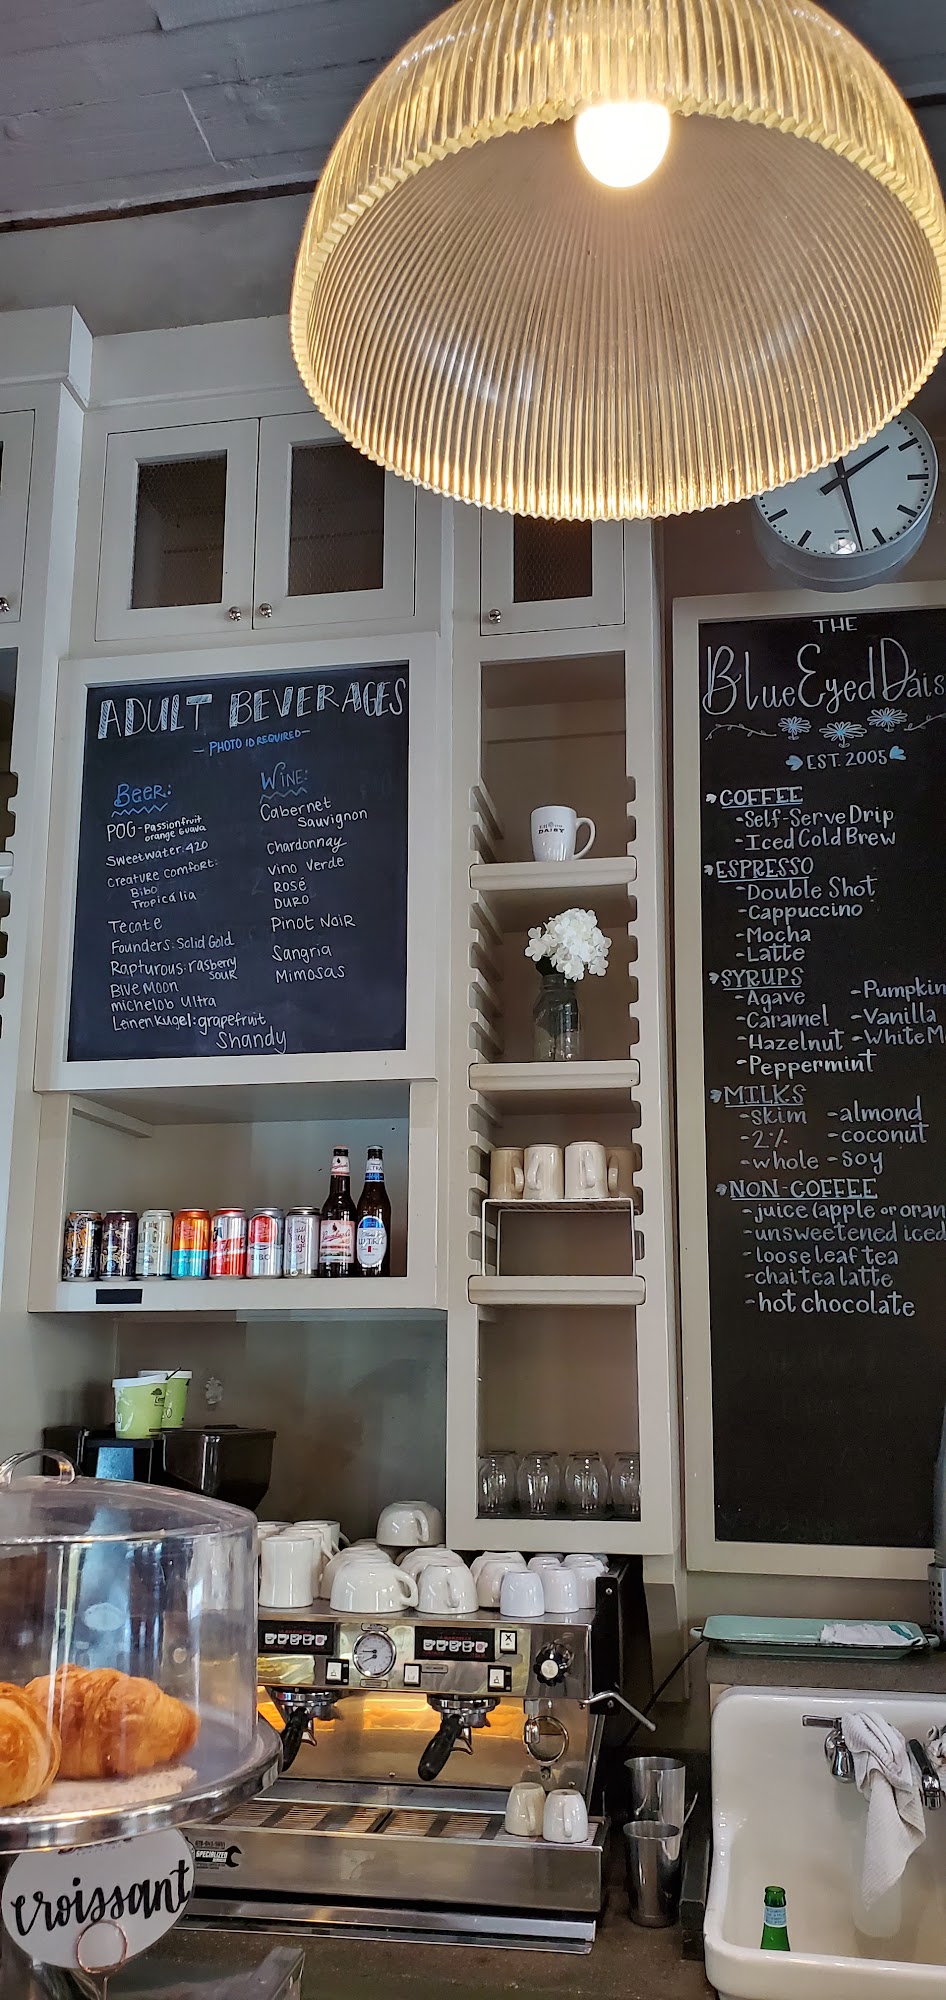 ADULT BEVERAGES
- PHOTO ID REQUIRED -
Beer:
POG - Passionfruit
orange Guava
Sweetwater: 420
Creature Comfort:
Bibo
Tropicália
Tecate
Founders: Solid Gold
Rapturous: rasberry
sour
Blue Moon
michelob Ultra
Leinenkugel: grapefruit
Shandy
Wine:
Cabernet
Sauvignon
Chardonnay
Vino Verde
Rosé
DURO
Pinot Noir
Sangria
Mimosas
DAISY
THE
Blue Eyed Dais
EST. 2005
COFFEE
- Self-Serve Drip
- Iced Cold Brew
ESPRESSO
- Double Shot
- Cappuccino
- Mocha
- Latte
SYRUPS
- Agave - Pumpkin
- Caramel - Vanilla
- Hazelnut - White M
- Peppermint
MILKS
- skim - almond
- 2% - coconut
- whole - soy
NON-COFFEE
- juice (apple or oran
- unsweetened iced
- loose leaf tea
- chai tea latte
- hot chocolate
ULTRA
SPECIALIZED
croissant